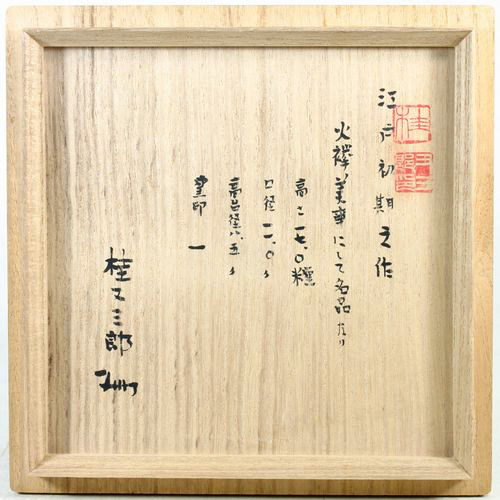 江戸初期之作
火襷美事にして名品たり
高二七.0糎
口径一一.0〃
高台径八.五〃
窯印 一
桂又三郎